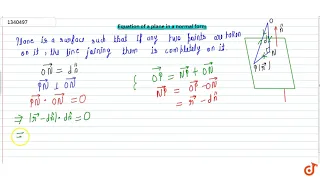 1340497
Equation of a plane in a normal form
Plane is a surface such that if any two points are taken
on it, the line joining them is completely on it.
ON⃗ = dn̂
PN⃗ ⊥ ON⃗
PN⃗ · ON⃗ = 0
⇒ (r⃗ - dn̂) · dn̂ = 0
=
{ OP⃗ = NP⃗ + ON⃗
NP⃗ = OP⃗ - ON⃗
= r⃗ - dn̂
O
n̂
N
P(r⃗)
doubtnut